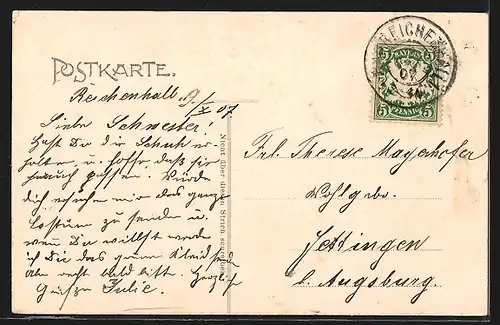 POSTKARTE.
Reichenhall, 9/X 07
Liebe Schwester!
Hast Du die Schuh er-
halten u. hoffe daß sie
Dir auch passen. Würde
dich ersuchen mir das ganze
Costüm zu senden u.
wenn Du willst werde
ich Dir das grüne Kleid send
Aber recht bald bitte. Herzliche
Grüße Julie.
Nicht über diesen Strich schreiben
REICHENHALL
07
BAYERN
5 5
5 PFENNIG 5
Frl. Therese Mayerhofer
Wohlgeb.
Jettingen
b. Augsburg.